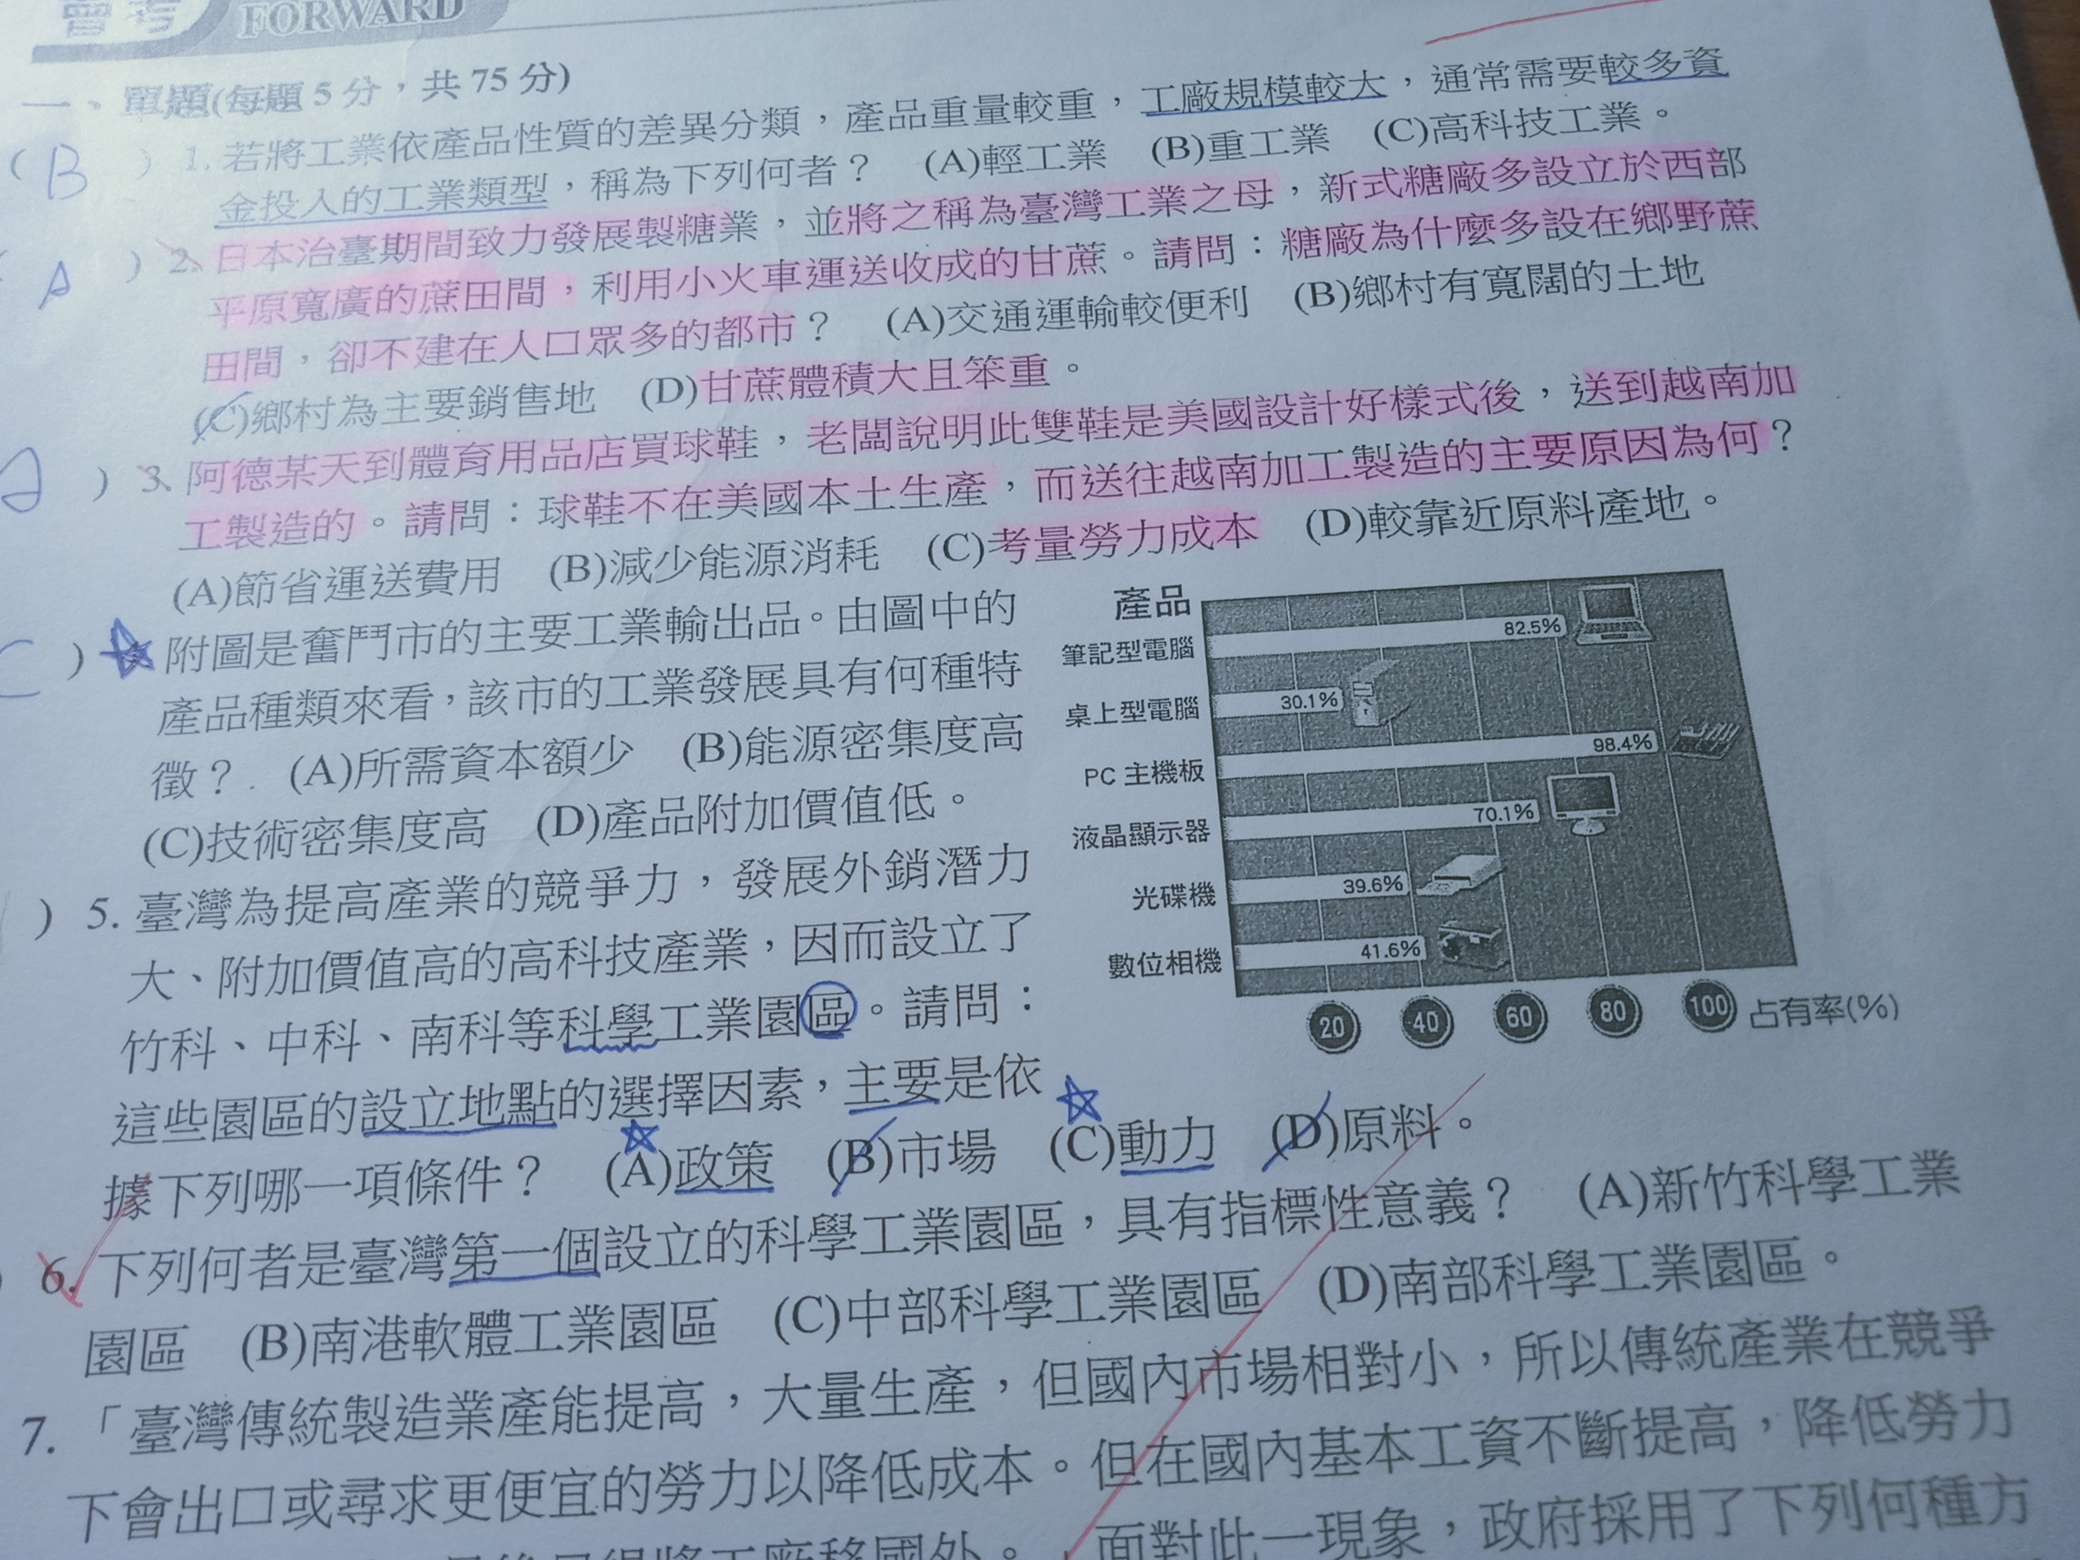 會考 FORWARD
一、單題(每題 5 分，共 75 分)
( B ) 1. 若將工業依產品性質的差異分類，產品重量較重，工廠規模較大，通常需要較多資
金投入的工業類型，稱為下列何者？ (A)輕工業 (B)重工業 (C)高科技工業。
( A ) 2. 日本治臺期間致力發展製糖業，並將之稱為臺灣工業之母，新式糖廠多設立於西部
平原寬廣的蔗田間，利用小火車運送收成的甘蔗。請問：糖廠為什麼多設在鄉野蔗
田間，卻不建在人口眾多的都市？ (A)交通運輸較便利 (B)鄉村有寬闊的土地
(C)鄉村為主要銷售地 (D)甘蔗體積大且笨重。
) 3. 阿德某天到體育用品店買球鞋，老闆說明此雙鞋是美國設計好樣式後，送到越南加
工製造的。請問：球鞋不在美國本土生產，而送往越南加工製造的主要原因為何？
(A)節省運送費用 (B)減少能源消耗 (C)考量勞力成本 (D)較靠近原料產地。
C ) 附圖是奮鬥市的主要工業輸出品。由圖中的
產品種類來看，該市的工業發展具有何種特
徵？ (A)所需資本額少 (B)能源密集度高
(C)技術密集度高 (D)產品附加價值低。
產品
筆記型電腦 82.5%
桌上型電腦 30.1%
PC 主機板 98.4%
液晶顯示器 70.1%
光碟機 39.6%
數位相機 41.6%
20 40 60 80 100 占有率(%)
) 5. 臺灣為提高產業的競爭力，發展外銷潛力
大、附加價值高的高科技產業，因而設立了
竹科、中科、南科等科學工業園區。請問：
這些園區的設立地點的選擇因素，主要是依
據下列哪一項條件？ (A)政策 (B)市場 (C)動力 (D)原料。
) 6. 下列何者是臺灣第一個設立的科學工業園區，具有指標性意義？ (A)新竹科學工業
園區 (B)南港軟體工業園區 (C)中部科學工業園區 (D)南部科學工業園區。
7. 「臺灣傳統製造業產能提高，大量生產，但國內市場相對小，所以傳統產業在競爭
下會出口或尋求更便宜的勞力以降低成本。但在國內基本工資不斷提高，降低勞力
將工廠移國外。」面對此一現象，政府採用了下列何種方